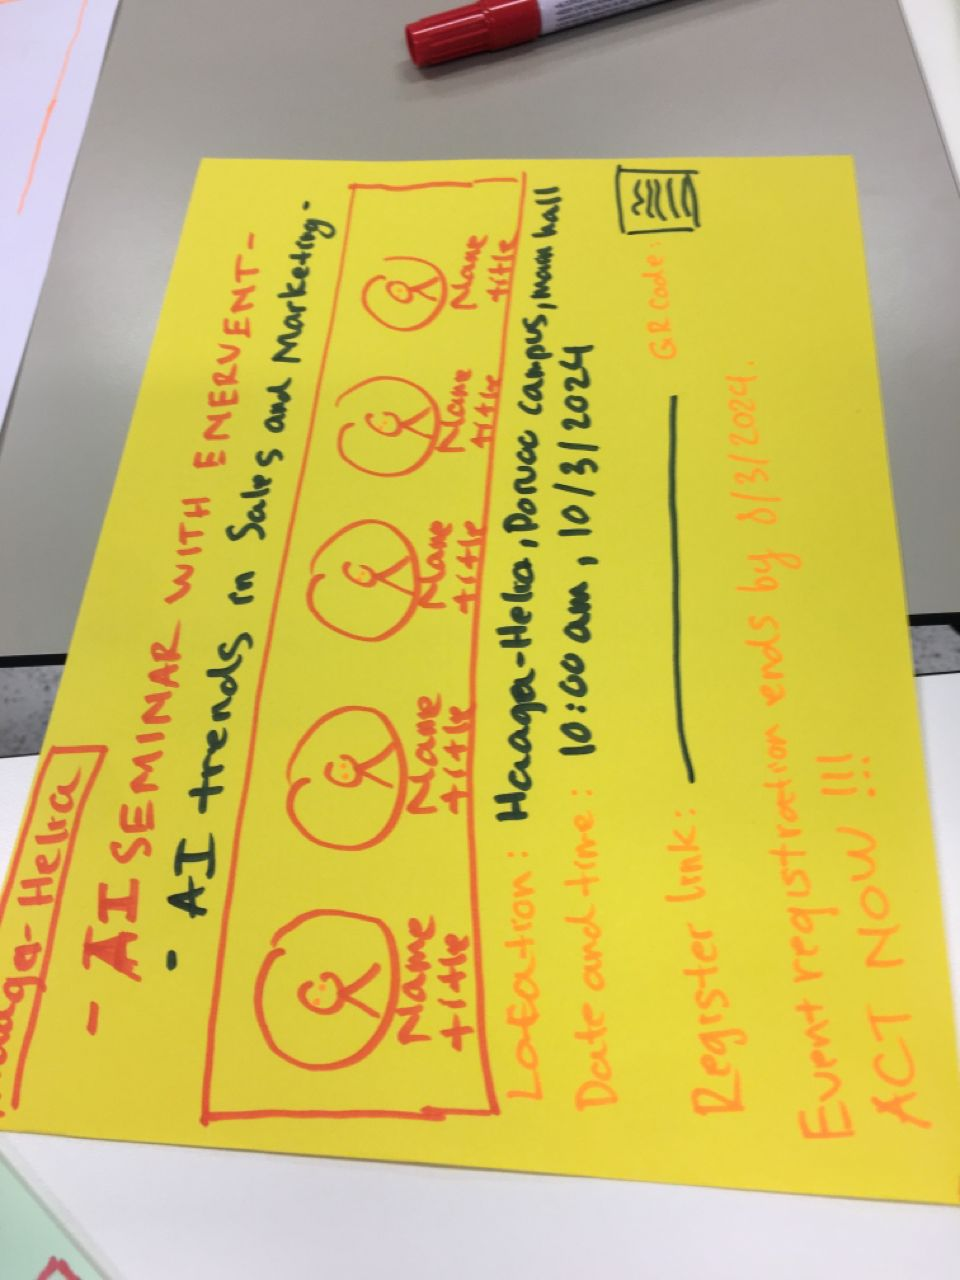 Haaga-Helia
- AI SEMINAR WITH ENERVENT -
- AI trends in Sales and Marketing -
Name Name Name Name Name
title title title title title
Location: Haaga-Helia, Porvoo campus, main hall
Date and time: 10:00 am, 10/3/2024
Register link: QR code:
Event registration ends by 8/3/2024.
ACT NOW !!!